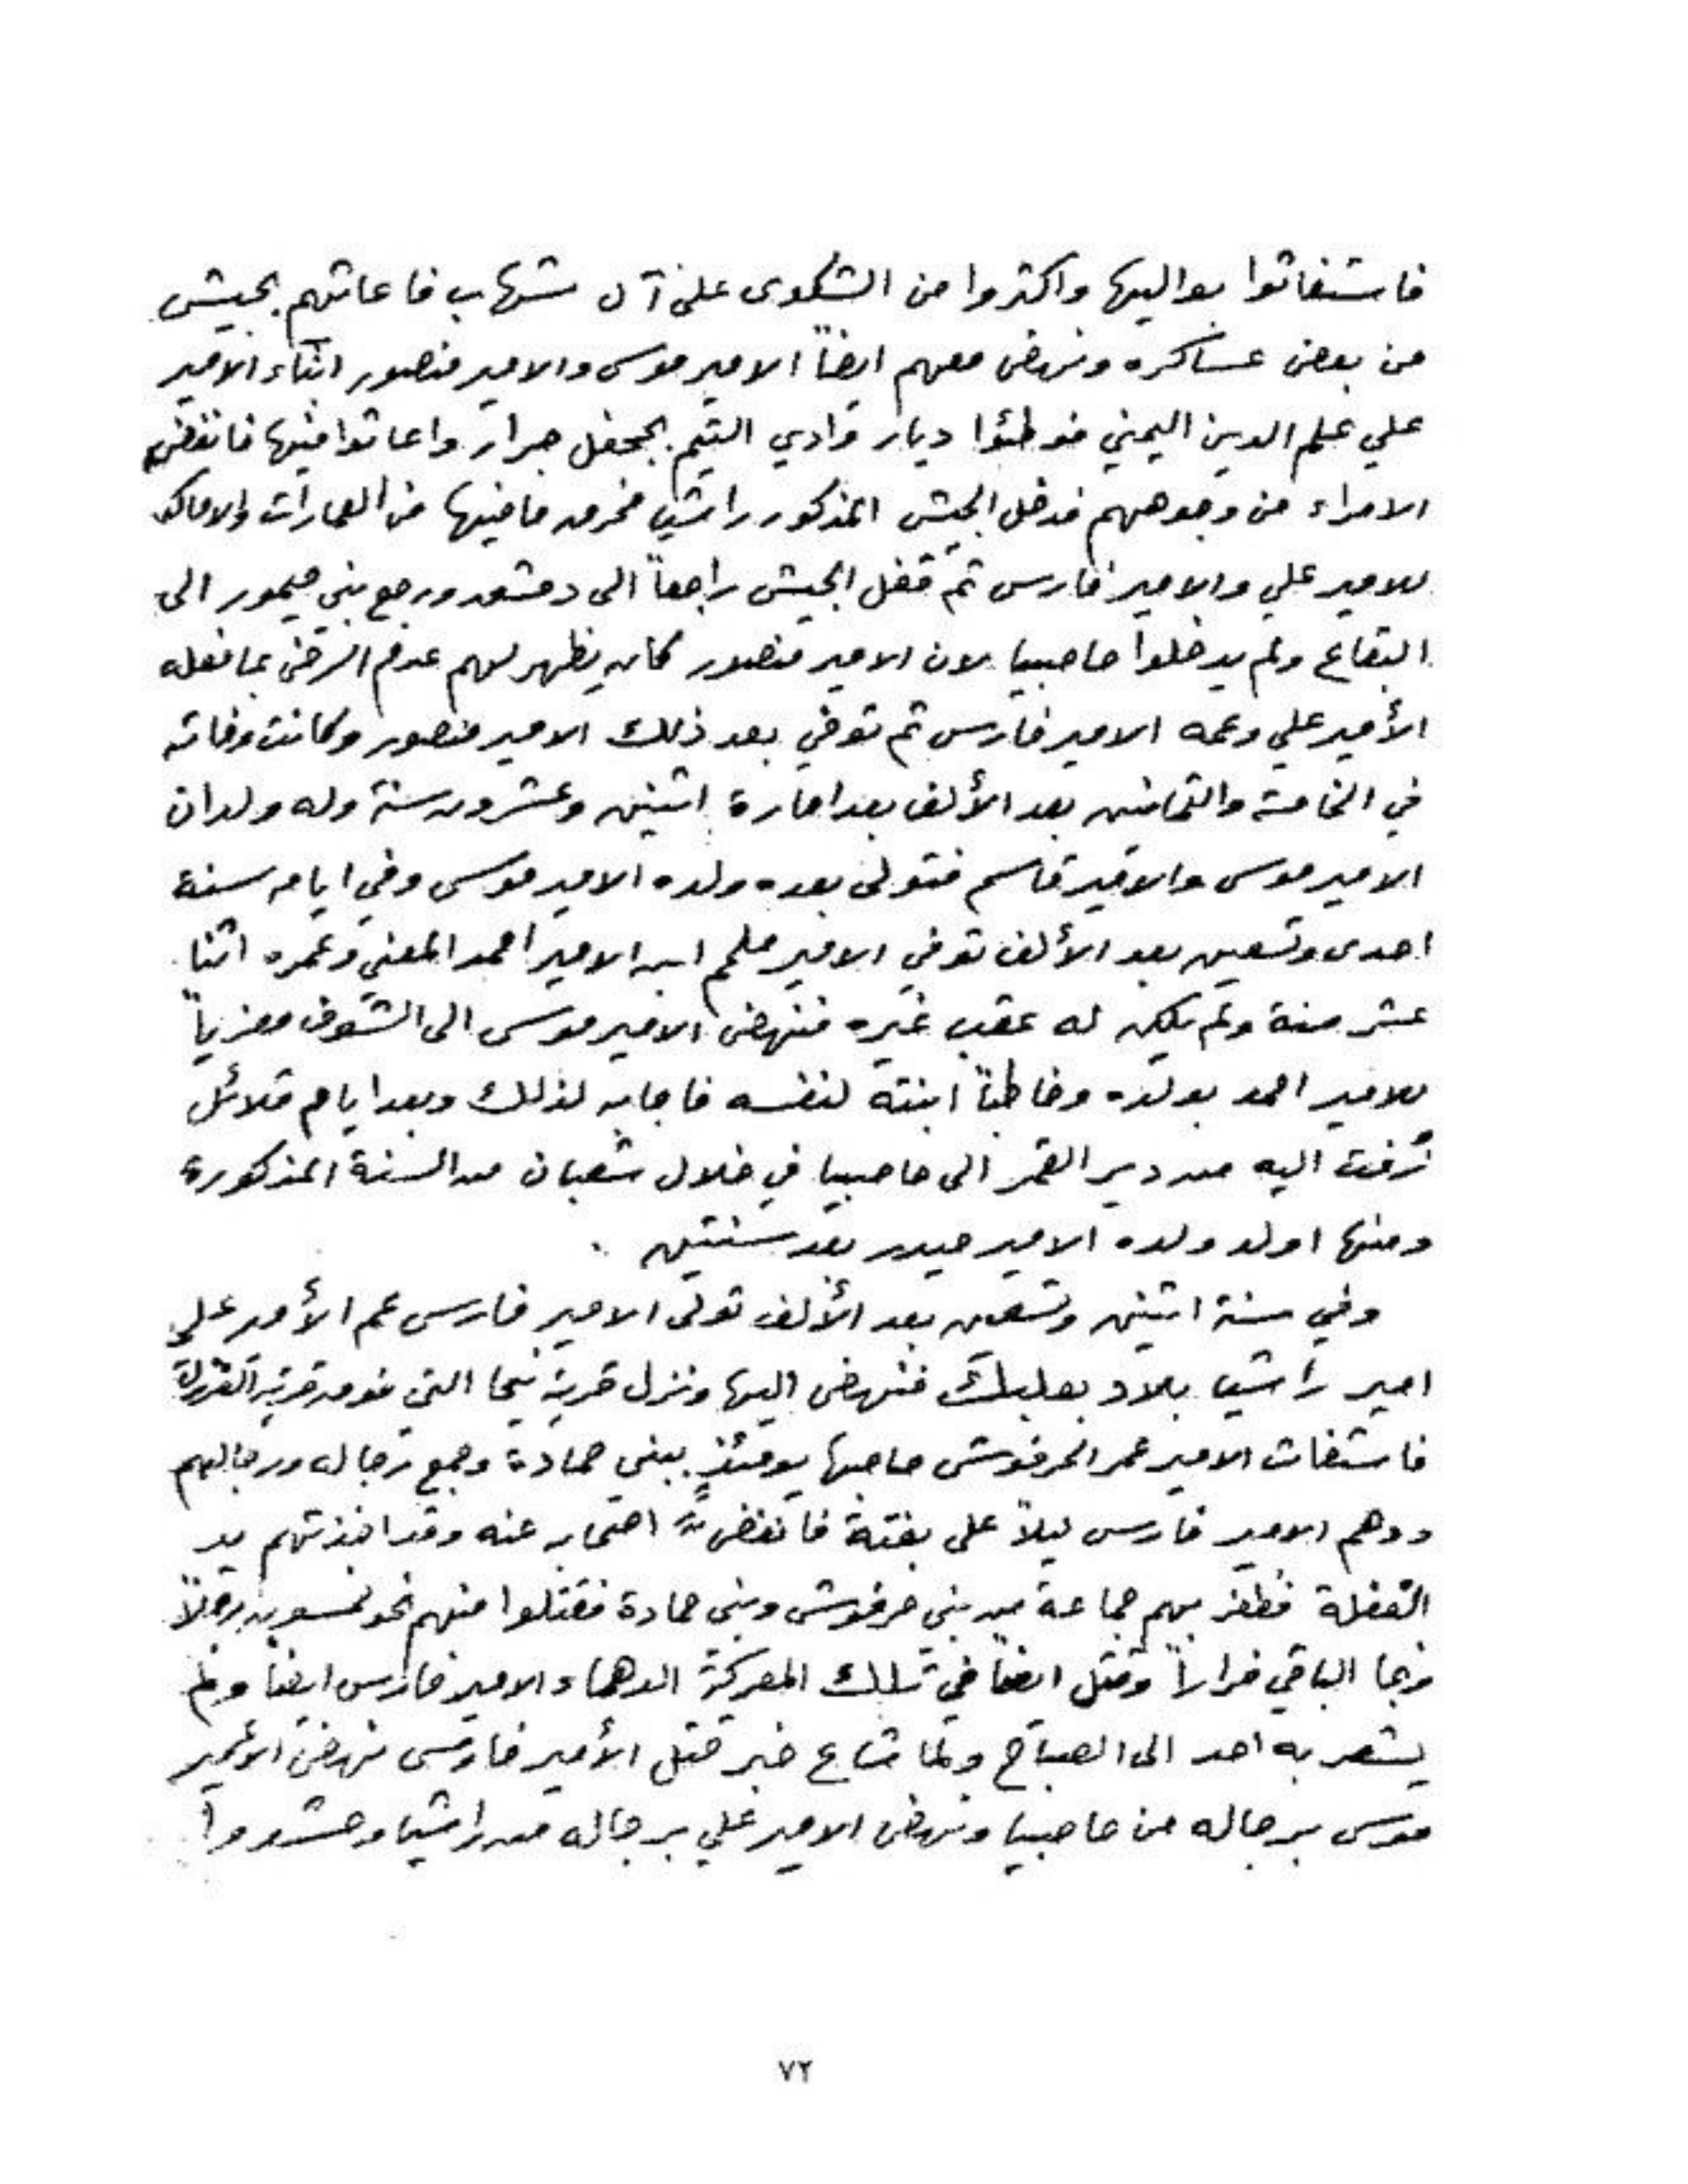 فاستغاثوا بواليها واكثروا من الشكوى على آل شهاب فاعانهم بجيش
من بعض عساكره ونهض معهم ايضاً الامير موسى والامير منصور ابناء الامير
علي علم الدين اليمني فوطئوا ديار وادي التيم بجحفل جرار واعاثوا فيها فانفض
الامراء من وجوههم فدخل الجيش المذكور راشيا فخرب ما فيها من العمارات والاماكن
للامير علي والامير فارس ثم قفل الجيش راجعاً الى دمشق ورجع بني حيمور الى
البقاع ولم يدخلوا حاصبيا لان الامير منصور كان يظهر لهم عدم الرضى بما فعله
الأمير علي وعمه الامير فارس ثم توفي بعد ذلك الامير منصور وكانت وفاته
في الخامسة والثمانين بعد الألف بعد امارة اثنين وعشرون سنة وله ولدان
الامير موسى والامير قاسم فتولى بعده ولده الامير موسى وفي ايامه سنة
احدى وتسعين بعد الألف توفي الامير ملحم ابن الامير احمد المعني وعمره اثنا
عشر سنة ولم يكن له عقب غيره فنهض الامير موسى الى الشوف معزياً
للامير احمد بولده وخاطباً ابنته لنفسه فاجابه لذلك وبعد ايام قلائل
زُفت اليه من دير القمر الى حاصبيا في خلال شعبان من السنة المذكورة
ومنها اولد ولده الامير حيدر بعد سنتين .
وفي سنة اثنين وتسعين بعد الألف تولى الامير فارس عم الأمير علي
امير راشيا بلاد بعلبك فنهض اليها ونزل قرية نيحا التي فوق قرية الفرزل
فاستغاث الامير عمر الحرفوش صاحبها يومئذٍ ببني حمادة وجمع رجاله ورجالهم
ودهم الامير فارس ليلاً على بغتة فانفضت اصحابه عنه وقد اخذتهم يد
الغفلة فظفر بهم جماعة من بني حرفوش وبني حمادة فقتلوا منهم نحو خمسون رجلاً
ونجا الباقي فراراً وقتل ايضاً في تلك المعركة الدهماء الامير فارس ايضاً ولم
يشعر به احد الى الصباح ولما شاع خبر قتل الأمير فارس نهض الأمير
موسى برجاله من حاصبيا ونهض الامير علي برجاله من راشيا وحشدوا
٧٢